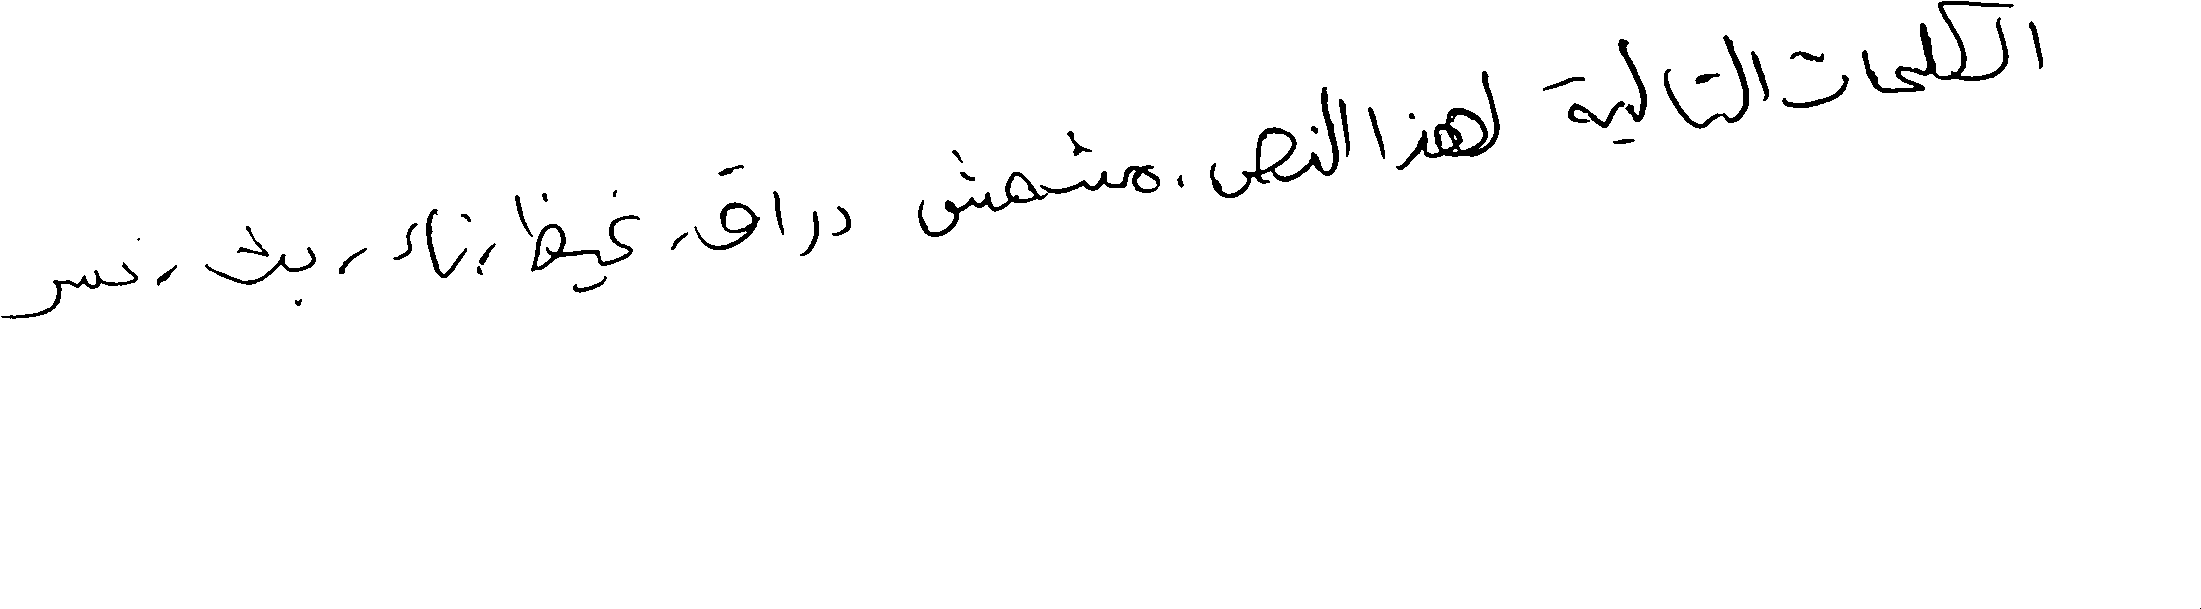 الكلمات التالية لهذا النص. مشمش دراق، غيظ، نهار، بث، نسر